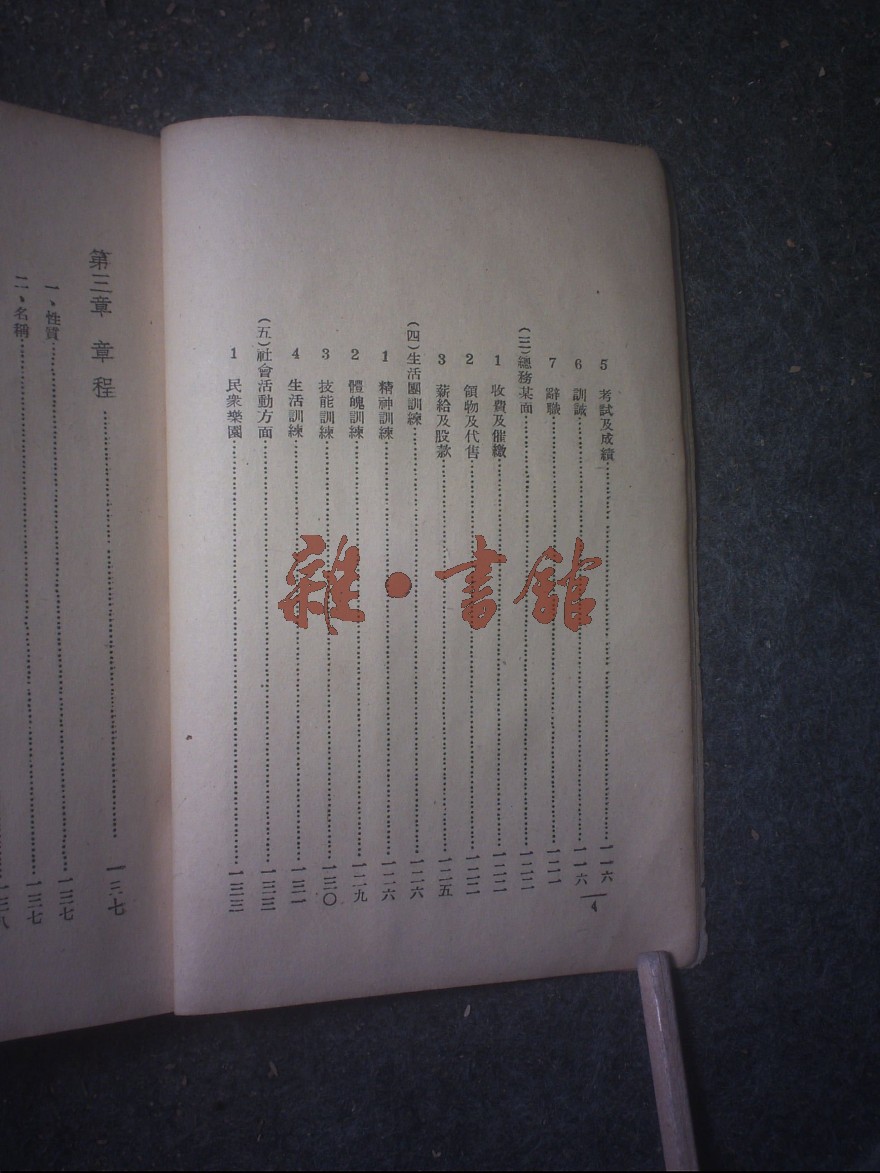 5 考試及成績 一一六
6 訓誡 一一六
7 辭職 一二一
(三)總務某面 一二二
1 收費及催繳 一二二
2 領物及代售 一二二
3 薪給及股款 一二五
(四)生活團訓練 一二六
1 精神訓練 一二六
2 體魄訓練 一二九
3 技能訓練 一三〇
4 生活訓練 一三一
(五)社會活動方面 一三三
1 民衆樂園 一三三
4
第三章 章程 一三七
一、性質 一三七
二、名稱 一三七
一三八
雜·書館